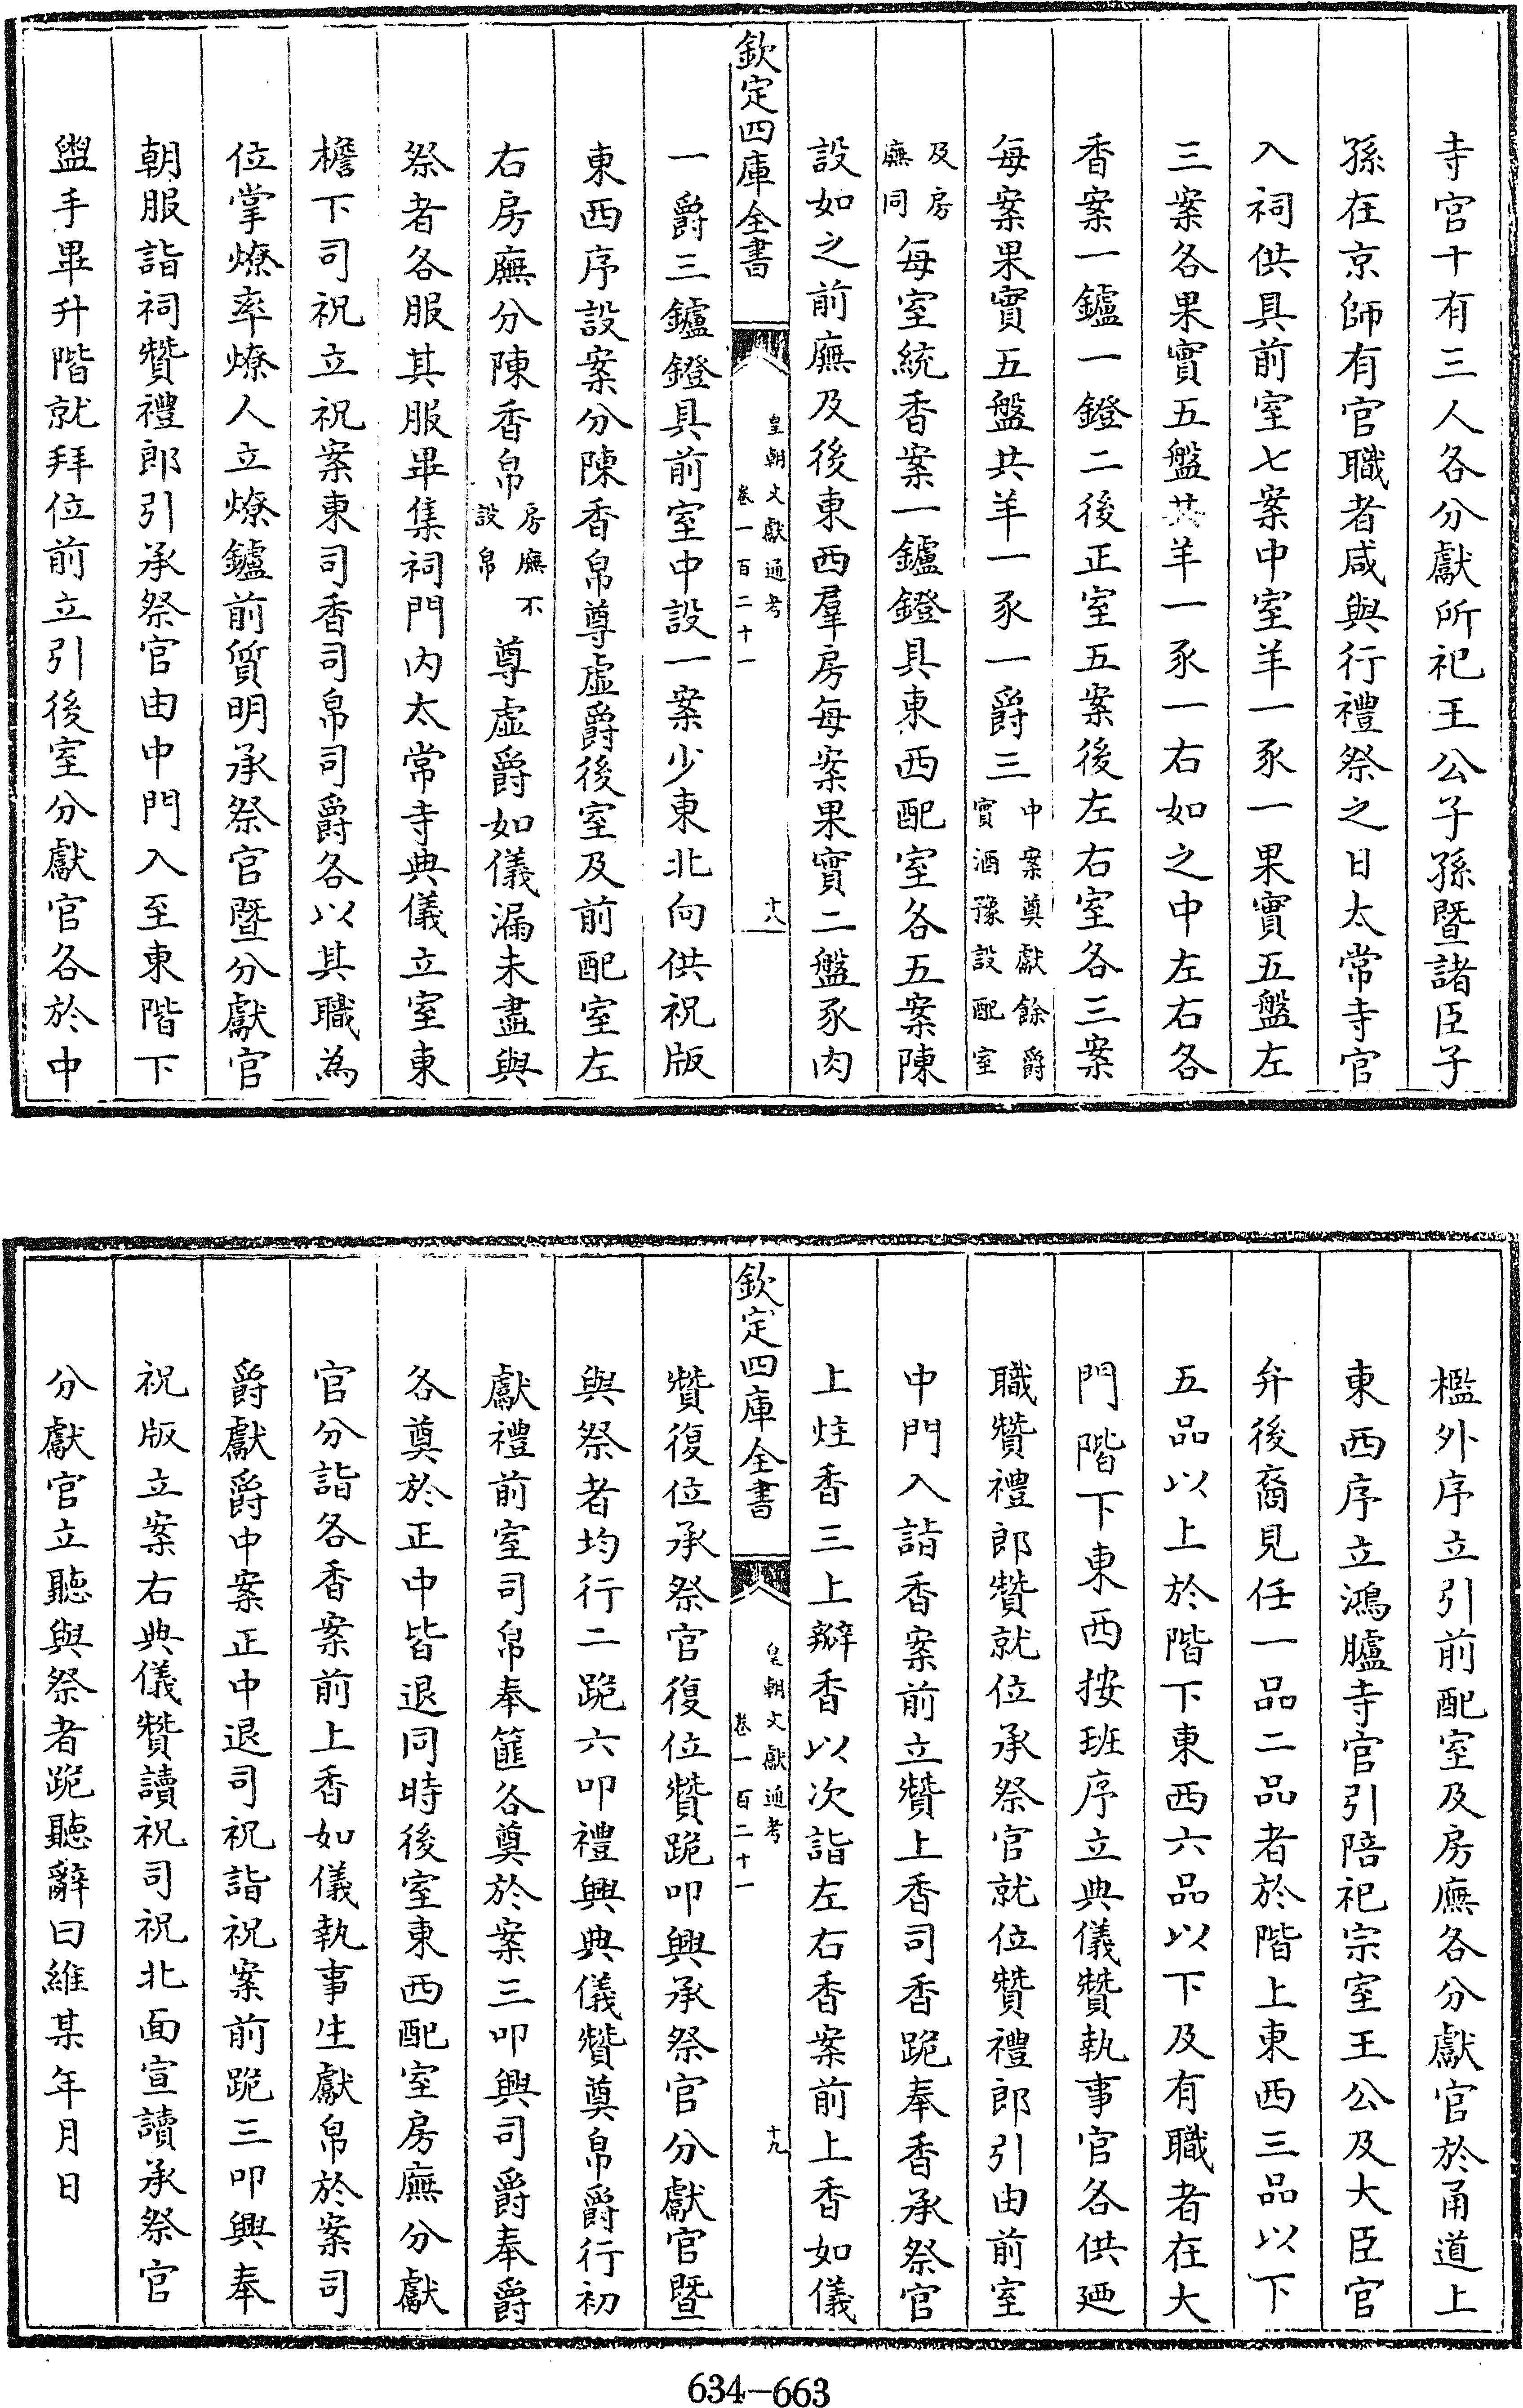 寺官十有三人各分獻所祀王公子孫暨諸臣子
孫在京師有官職者咸與行禮祭之日太常寺官
入祠供具前室七案中室羊一豕一果實五盤左
三案各果實五盤共羊一豕一右如之中左右各
香案一鑪一鐙二後正室五案後左右室各三案
每案果實五盤共羊一豕一爵三中案奠獻餘爵實酒豫設配室
及房廡同每室統香案一鑪鐙具東西配室各五案陳
設如之前廡及後東西羣房每案果實二盤豕肉
欽定四庫全書
皇朝文獻通考
卷一百二十一
十八
一爵三鑪鐙具前室中設一案少東北向供祝版
東西序設案分陳香帛尊虛爵後室及前配室左
右房廡分陳香帛房廡不設帛尊虛爵如儀漏未盡與
祭者各服其服畢集祠門內太常寺典儀立室東
檐下司祝立祝案東司香司帛司爵各以其職為
位掌燎率燎人立燎鑪前質明承祭官暨分獻官
朝服詣祠贊禮郎引承祭官由中門入至東階下
盥手畢升階就拜位前立引後室分獻官各於中
檻外序立引前配室及房廡各分獻官於甬道上
東西序立鴻臚寺官引陪祀宗室王公及大臣官
弁後裔見任一品二品者於階上東西三品以下
五品以上於階下東西六品以下及有職者在大
門階下東西按班序立典儀贊執事官各供廼
職贊禮郎贊就位承祭官就位贊禮郎引由前室
中門入詣香案前立贊上香司香跪奉香承祭官
上炷香三上瓣香以次詣左右香案前上香如儀
欽定四庫全書
皇朝文獻通考
卷一百二十一
十九
贊復位承祭官復位贊跪叩興承祭官分獻官暨
與祭者均行二跪六叩禮興典儀贊奠帛爵行初
獻禮前室司帛奉篚各奠於案三叩興司爵奉爵
各奠於正中皆退同時後室東西配室房廡分獻
官分詣各香案前上香如儀執事生獻帛於案司
爵獻爵中案正中退司祝詣祝案前跪三叩興奉
祝版立案右典儀贊讀祝司祝北面宣讀承祭官
分獻官立聽與祭者跪聽辭曰維某年月日
634-663